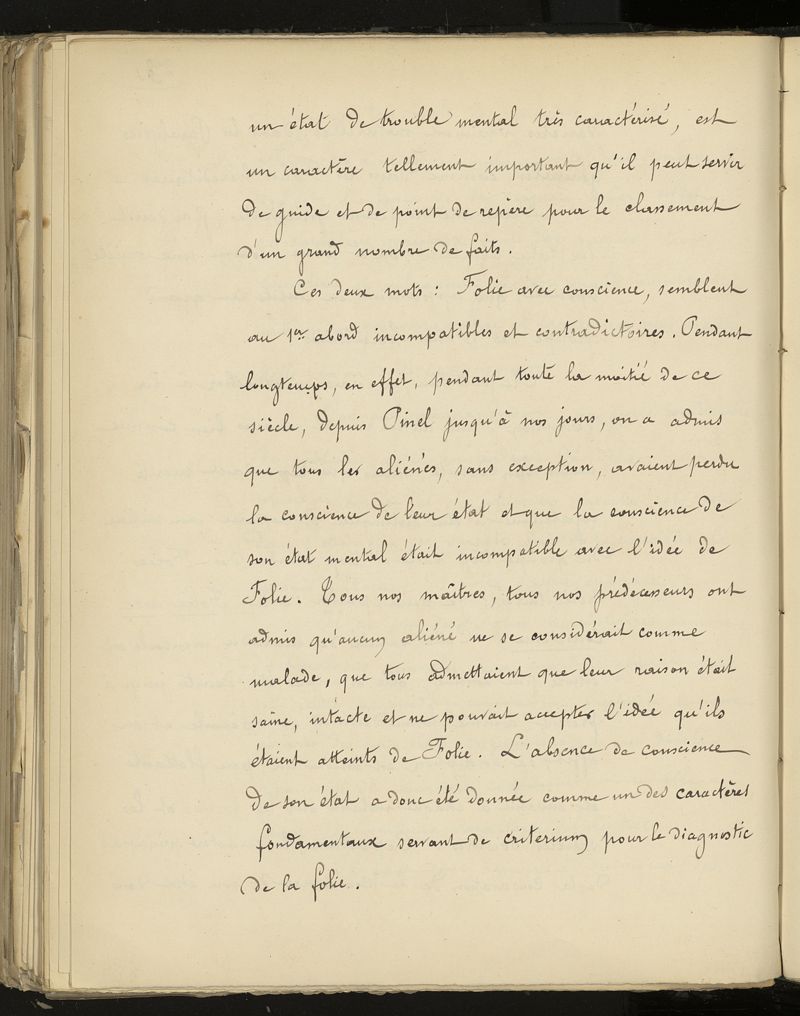 un état de trouble mental très caractérisé, est
un caractère tellement important qu'il peut servir
de guide et de point de repère pour le classement
d'un grand nombre de faits.
Ces deux mots : Folie avec conscience, semblent
au 1er abord incompatibles et contradictoires. Pendant
longtemps, en effet, pendant toute la moitié de ce
siècle, depuis Pinel jusqu'à nos jours, on a admis
que tous les aliénés, sans exception, avaient perdu
la conscience de leur état et que la conscience de
son état mental était incompatible avec l'idée de
Folie. Tous nos maîtres, tous nos prédécesseurs ont
admis qu'aucun aliéné ne se considérait comme
malade, que tous admettaient que leur raison était
saine, intacte et ne pouvait accepter l'idée qu'ils
étaient atteints de Folie. L'absence de conscience
de son état a donc été donnée comme un des caractères
fondamentaux servant de criterium pour le diagnostic
de la folie.